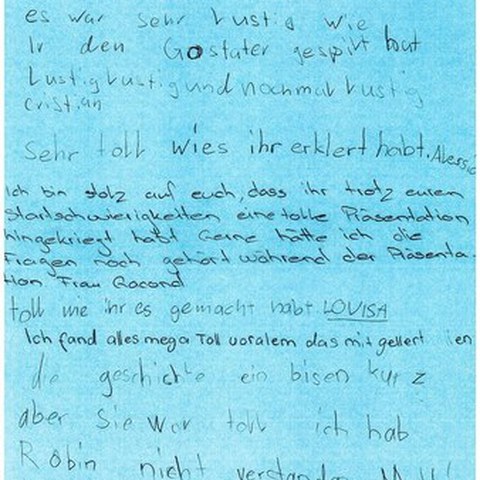 es war sehr Lustig wie
Ir den Gostater gespilt hat
Lustig Lustig und nochmal Lustig
cristian
Sehr toll wies ihr erklert habt. Alessio
Ich bin stolz auf euch, dass ihr trotz euren
Startschwierigkeiten eine tolle Präsentation
hingekriegt habt Gerne hätte ich die
Fragen noch gehört während der Präsenta-
tion Frau Gacond
toll wie ihr es gemacht habt LOUISA
Ich fand alles mega Toll voralem das mit gellert
die geschichte ein bisen kurz
aber Sie war toll ich hab
Robin nicht verstanden